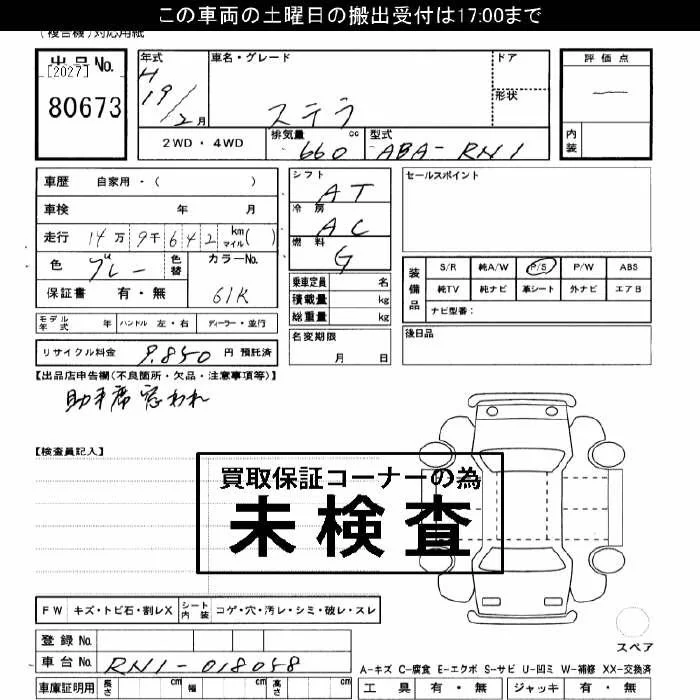 この車両の土曜日の搬出受付は17:00まで
(複合機)対応用紙
出品No.
[2027]
80673
年式
H
19/2月
車名・グレード
ステラ
ドア
形状
評価点
—
内装
2WD・4WD
排気量 660 cc
型式 ABA-RN1
車歴 自家用・( )
車検 年 月
走行 14万9千642 km マイル( )
色 グレー 色替 カラーNo. 61K
保証書 有・無
シフト AT
冷房 AC
燃料 G
乗車定員 名
積載量 kg
総重量 kg
名変期限
月 日
セールスポイント
装備品
S/R 純A/W P/S P/W ABS
純TV 純ナビ 革シート 外ナビ エアB
ナビ型番:
後日品
モデル年式 年 ハンドル 左・右 ディーラー・並行
リサイクル料金 9,850 円 預託済
【出品店申告欄(不良箇所・欠品・注意事項等)】
助手席窓われ
【検査員記入】
買取保証コーナーの為
未検査
FW キズ・トビ石・割レX シート内装 コゲ・穴・汚レ・シミ・破レ・スレ
スペア
登録No.
車台No. RN1-018058
A-キズ C-腐食 E-エクボ S-サビ U-凹ミ W-補修 XX-交換済
車庫証明用 長さ cm 幅 cm 高さ cm
工具 有・無 ジャッキ 有・無